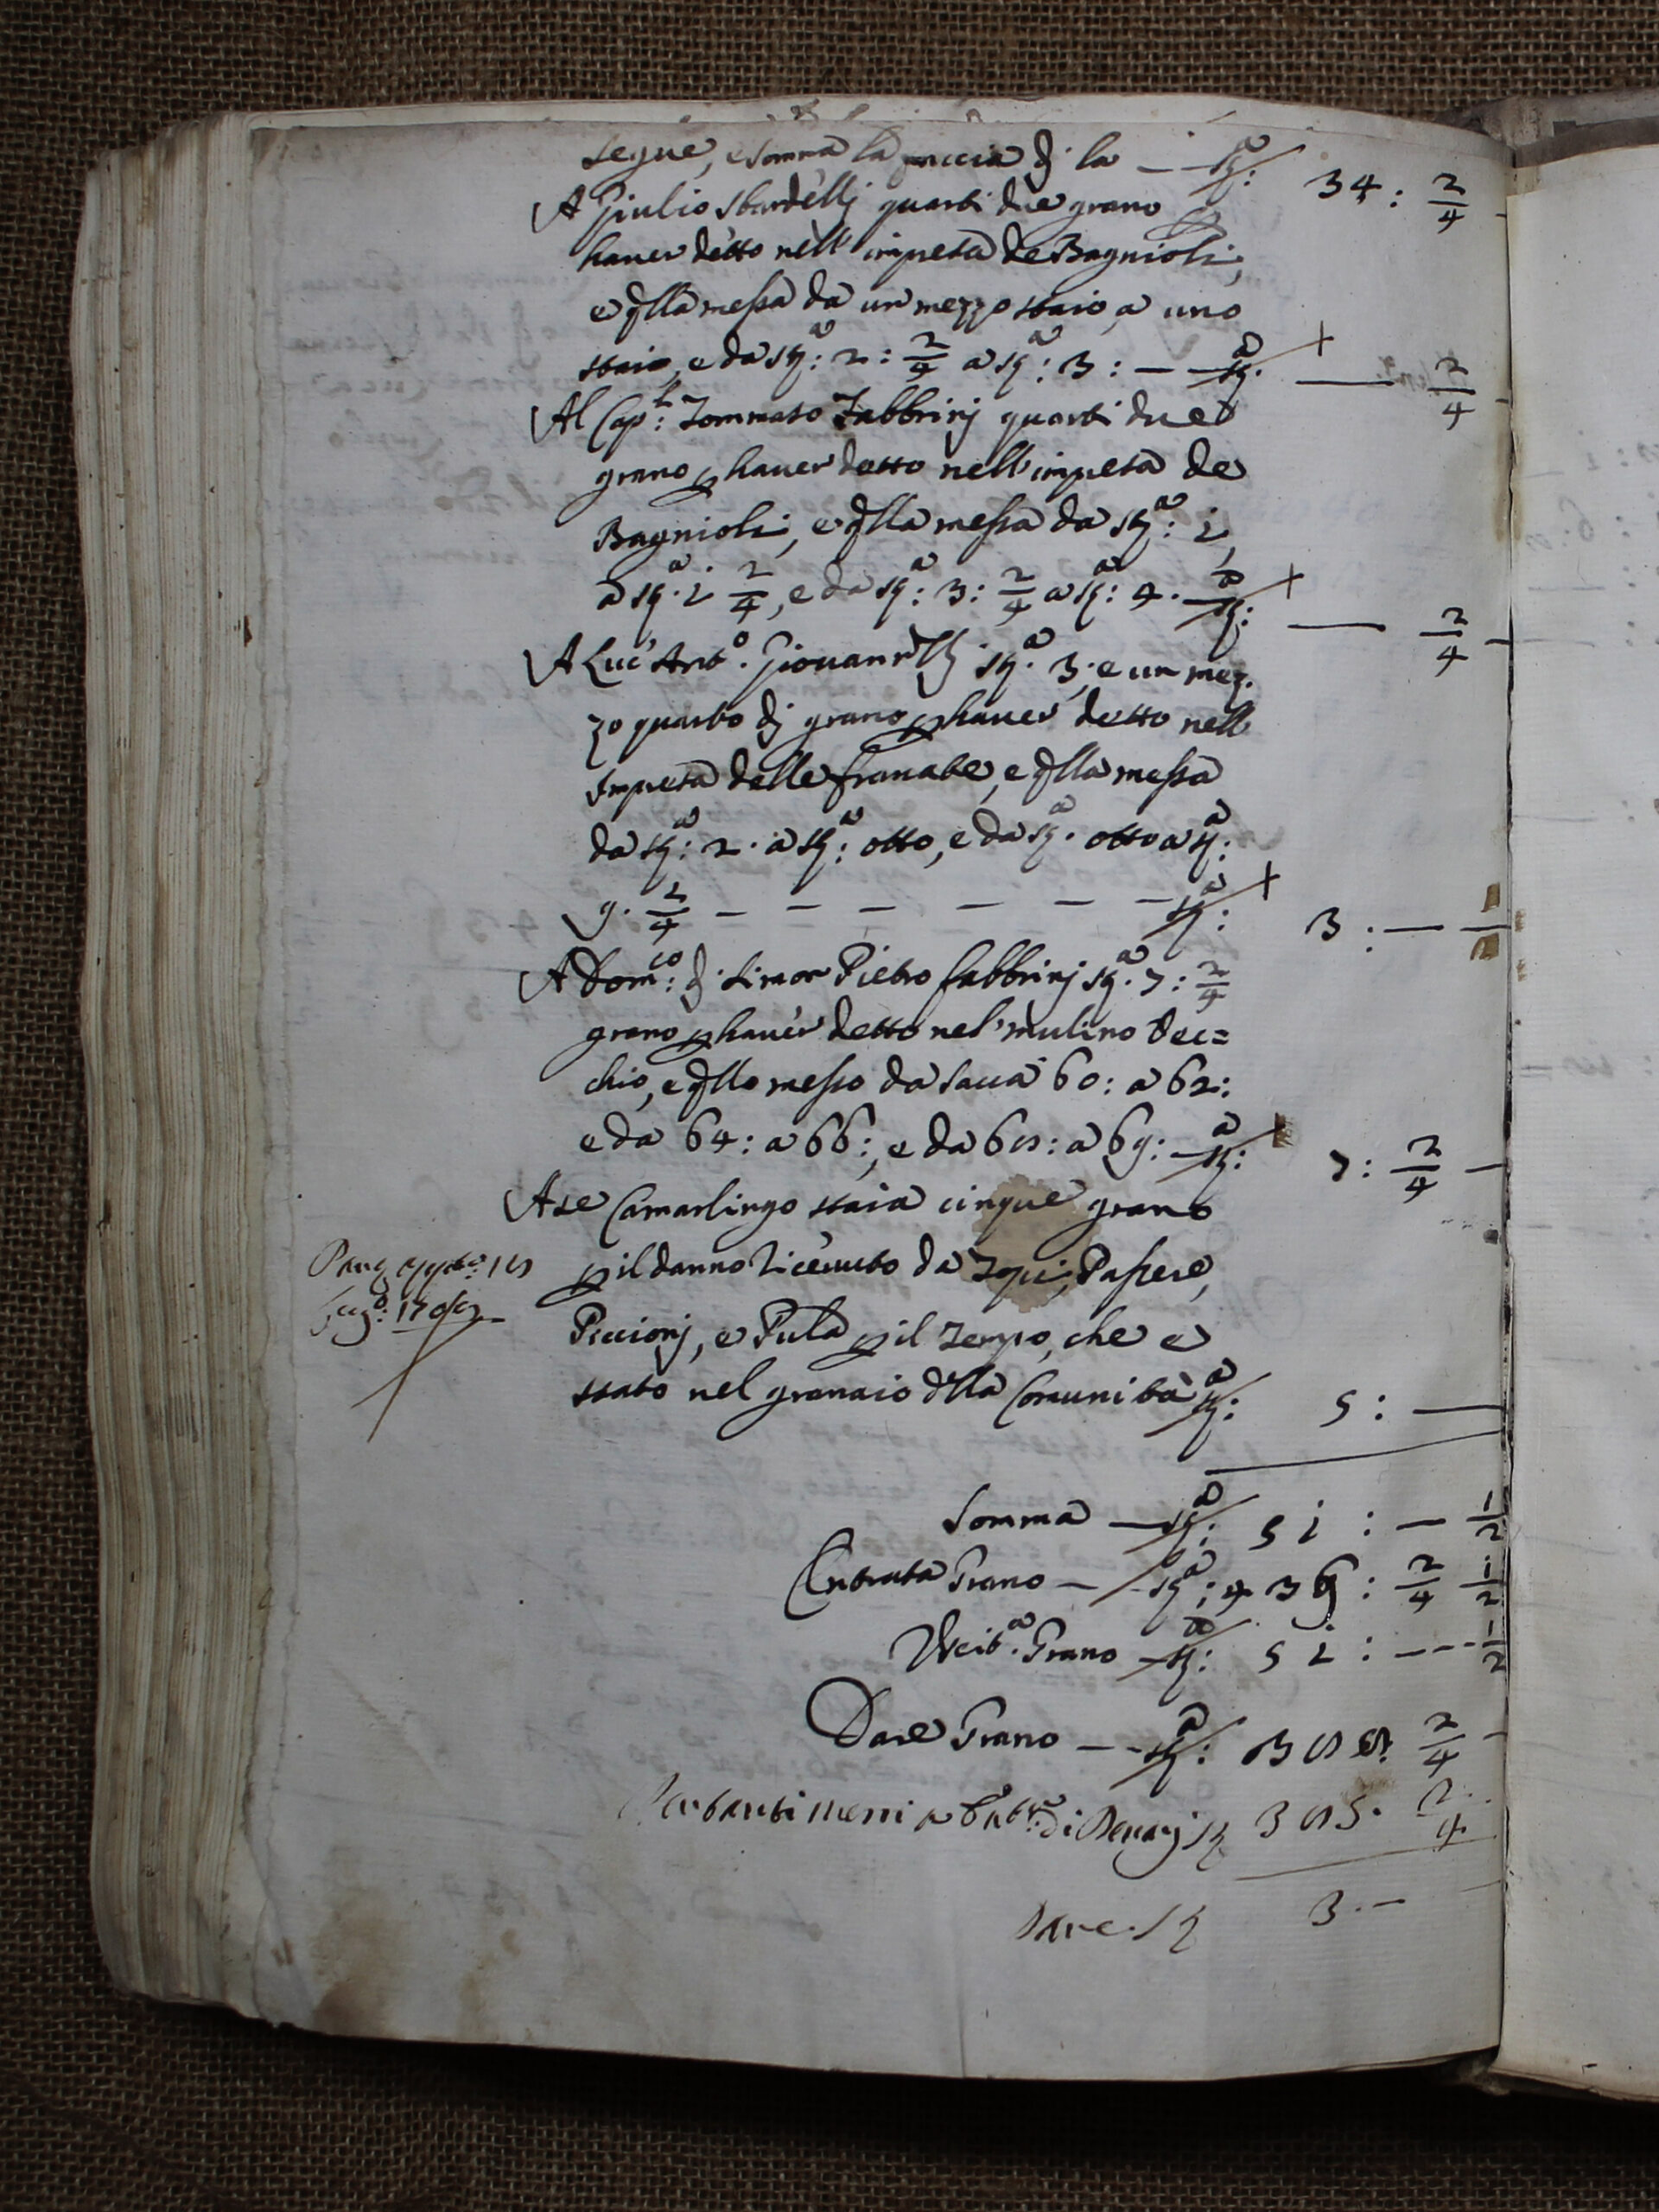 segue, e somma la faccia dj la — st.ª: 34: 2/4
A Giulio Sbardellj quarti due grano p
haver detto nell'impresa de Bagnioli,
e qlla messa da un mezzo staio, a uno
staio, e da stª: 2: 2/4 a stª: 3: — stª: — 2/4
Al Capª: Tommaso Fabbrinj quarti due
grano p haver detto nell'impresa de
Bagnioli, e qlla messa da stª: 1,
a stª. 1 2/4, e da stª: 3: 2/4 a stª: 4. — stª: — 2/4 —
A Luc'Antº. Giovannellj stª. 3. e un mez.
zo quarto dj grano p haver detto nell
Impresa delle franate, e qlla messa
da stª: 2. a stª: otto, e da stª. otto a stª:
9. 2/4 — — — — — — stª: 3: — —
A Domco: dj Simon Pietro fabbrinj stª. 7: 2/4
grano p haver detto nel' mulino Vec=
chio, e qllo messo da sacca 60: a 62:
e da 64: a 66:, e da 68: a 69: — stª: 7: 2/4 —
A se Camarlingo staia cinque grano
p il danno ricevuto da Topi, Passere,
Piccionj, e Pula p il tempo, che è
stato nel granaio dlla Comunità stª: 5: —
18
Lugº: 170
Somma — stª: 51: — 1/2
Entrata Grano — stª: 439: 2/4 1/2
Uscitª. Grano — stª: 51: — 1/2
Dare Grano — stª: 388. 2/4 —
Per tanti messi a Entrª: di Denarj st 385. 2/4
Dare. st 3. —